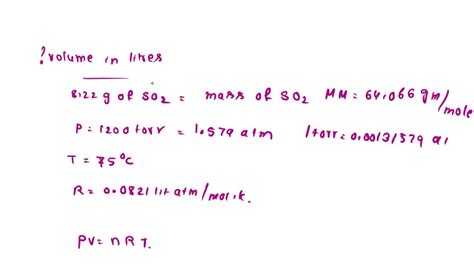 ? volume in lires
8.22 g of SO2 = mass of SO2 MM = 64.066 gm/mole
P = 1200 torr = 1.579 atm 1 torr = 0.00131579 at
T = 75°C
R = 0.0821 lit atm/mol.k.
PV = n R T.